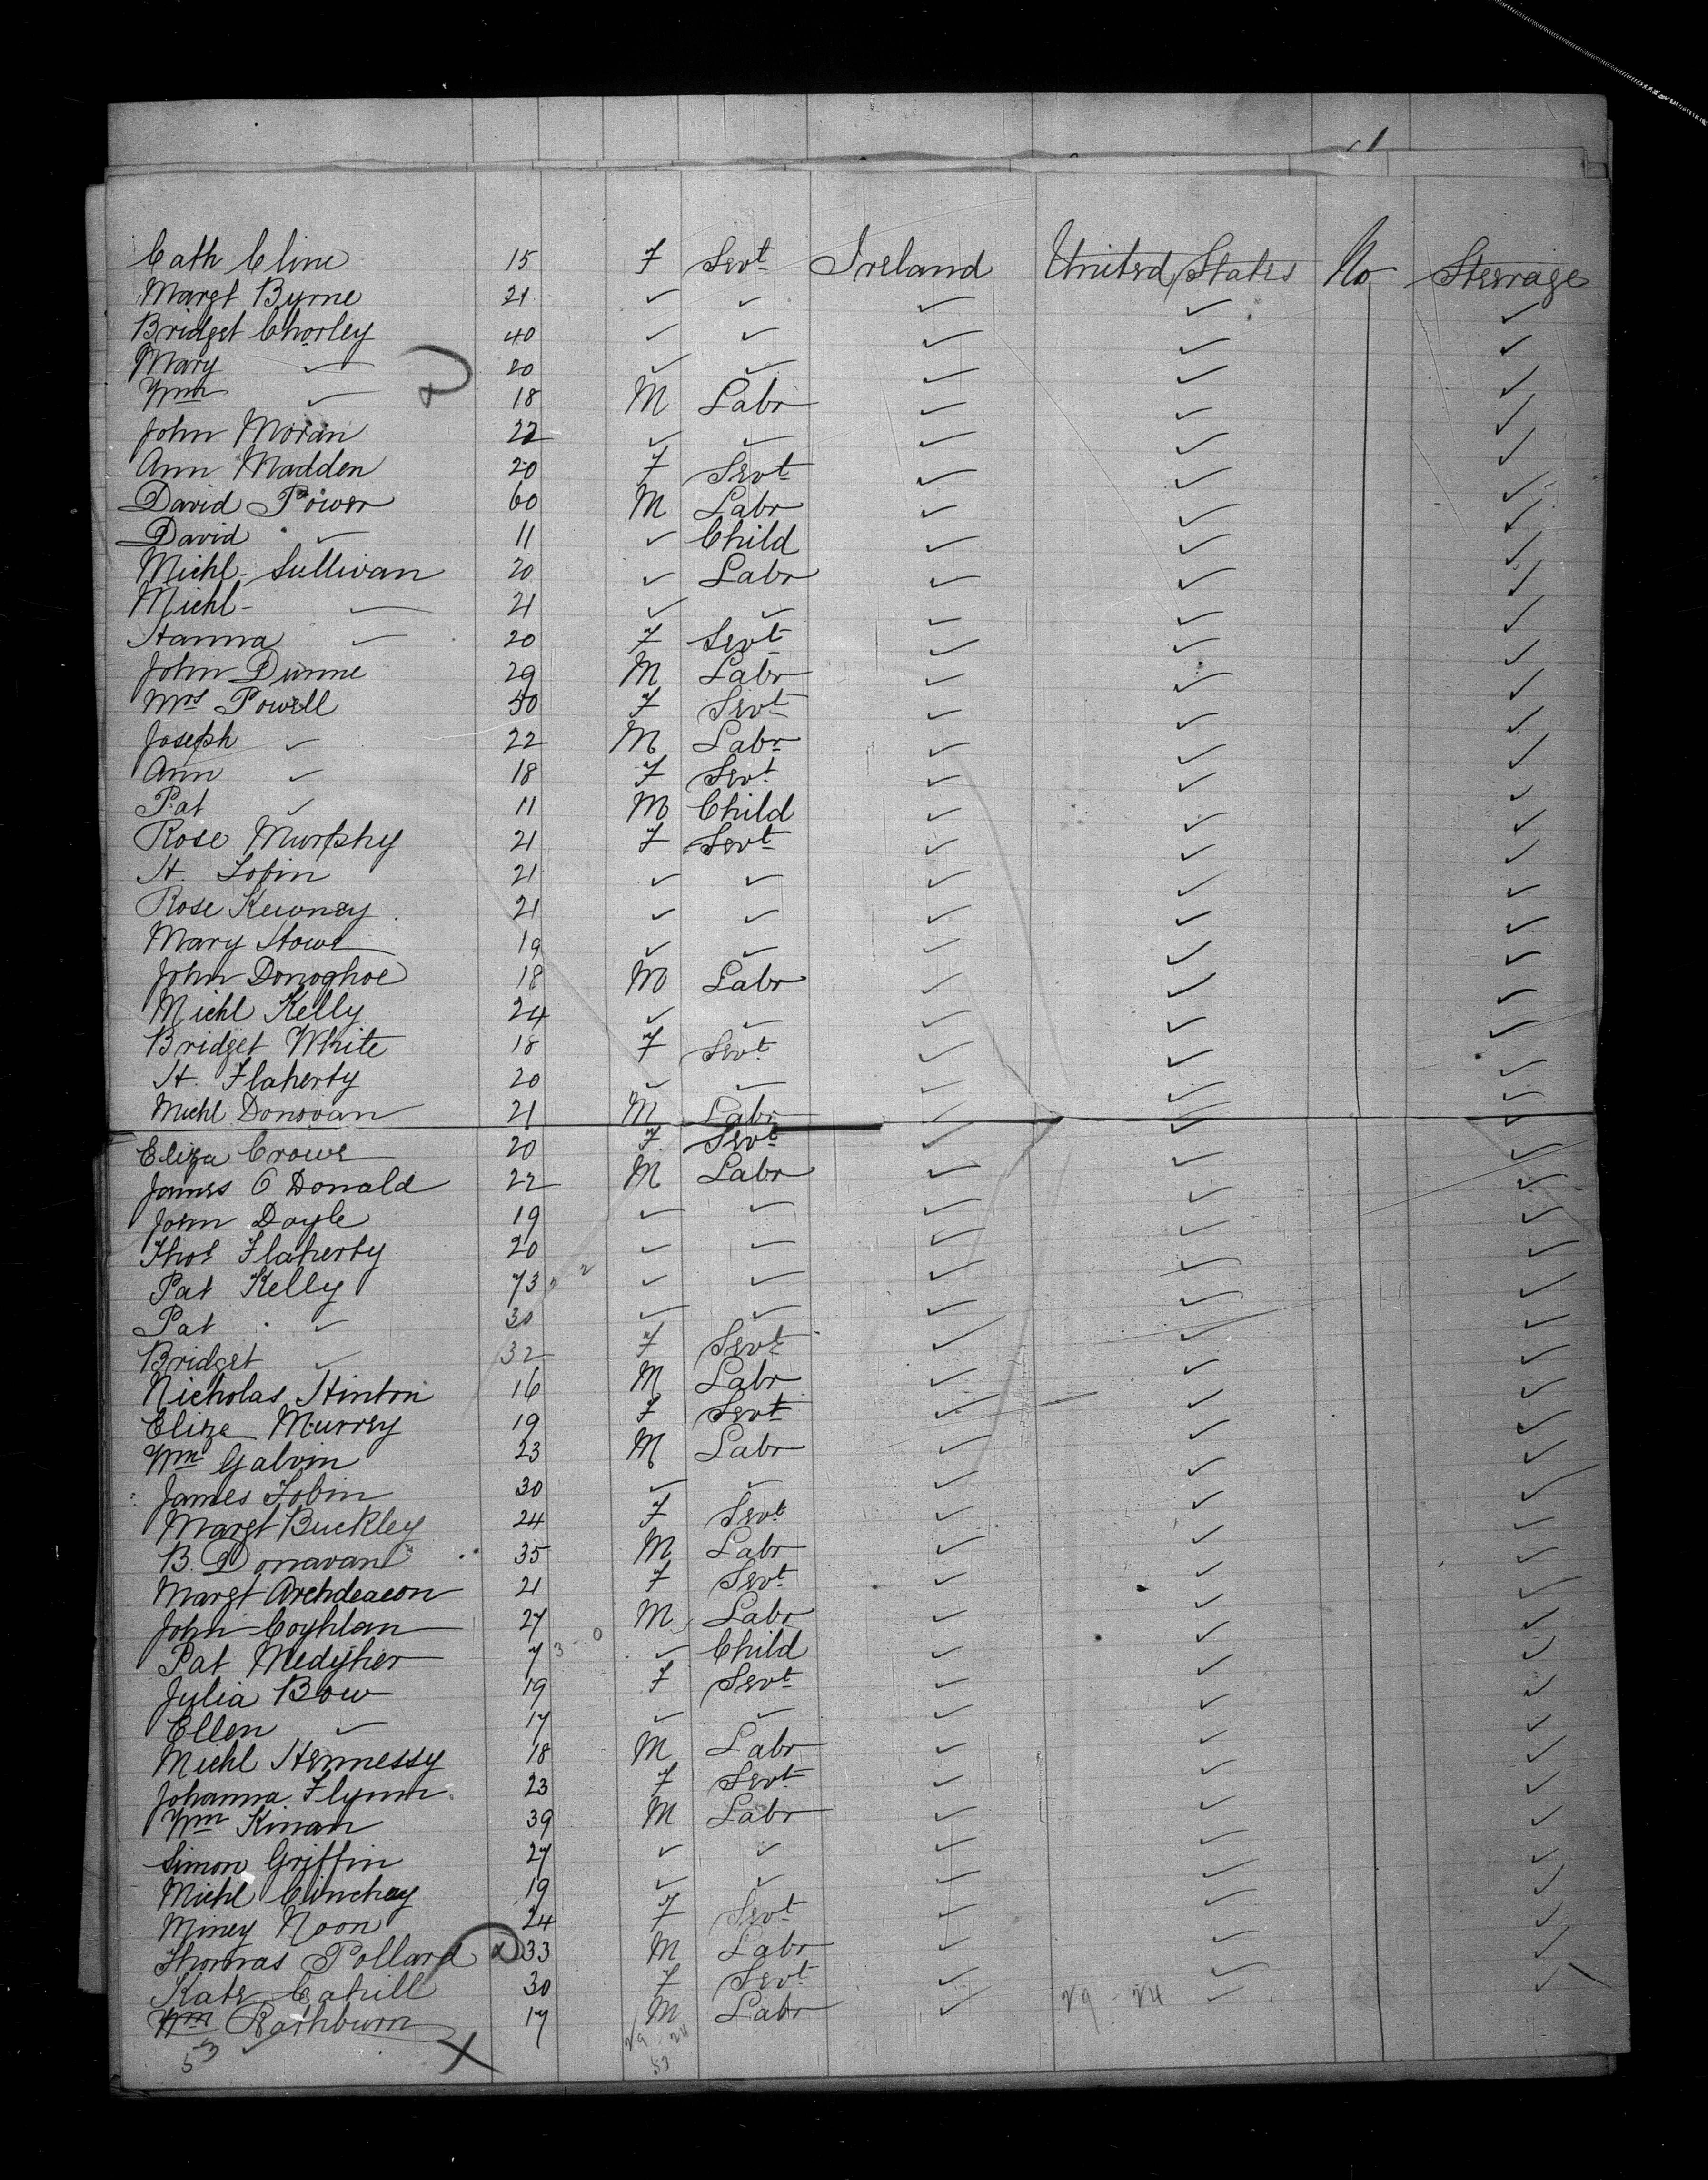 Cath Cline 15 F Servt Ireland United States No Steerage
Margt Byrne 21 ✓ ✓ ✓ ✓ ✓
Bridget Chorley 40 ✓ ✓ ✓ ✓ ✓
Mary ✓ 20 ✓ ✓ ✓ ✓ ✓
Wm ✓ 18 M Labr ✓ ✓ ✓
John Moran 22 ✓ ✓ ✓ ✓ ✓
Ann Madden 20 F Servt ✓ ✓ ✓
David Power 60 M Labr ✓ ✓ ✓
David ✓ 11 ✓ Child ✓ ✓ ✓
Michl Sullivan 20 ✓ Labr ✓ ✓ ✓
Michl ✓ 21 ✓ ✓ ✓ ✓ ✓
Hanna ✓ 20 F Servt ✓ ✓ ✓
John Dunne 29 M Labr ✓ ✓ ✓
Mrs Powell 50 F Servt ✓ ✓ ✓
Joseph ✓ 22 M Labr ✓ ✓ ✓
Ann ✓ 18 F Servt ✓ ✓ ✓
Pat ✓ 11 M Child ✓ ✓ ✓
Rose Murphy 21 F Servt ✓ ✓ ✓
H. Tobin 21 ✓ ✓ ✓ ✓ ✓
Rose 21 ✓ ✓ ✓ ✓ ✓
Mary Howe 19 ✓ ✓ ✓ ✓ ✓
John Donoghoe 18 M Labr ✓ ✓ ✓
Michl Kelly 24 ✓ ✓ ✓ ✓ ✓
Bridget White 18 F Servt ✓ ✓ ✓
H. Flaherty 20 ✓ ✓ ✓ ✓ ✓
Michl Donovan 21 M Labr ✓ ✓ ✓
Eliza Crowe 20 F Servt ✓ ✓ ✓
James O Donald 22 M Labr ✓ ✓ ✓
John Doyle 19 ✓ ✓ ✓ ✓ ✓
Thos Flaherty 20 ✓ ✓ ✓ ✓ ✓
Pat Kelly 73 ✓ ✓ ✓ ✓ ✓
Pat ✓ 30 ✓ ✓ ✓ ✓ ✓
Bridget ✓ 32 F Servt ✓ ✓ ✓
Nicholas Hinton 16 M Labr ✓ ✓ ✓
Eliza Murrey 19 F Servt ✓ ✓ ✓
Wm Galvin 23 M Labr ✓ ✓ ✓
James Tobin 30 ✓ ✓ ✓ ✓ ✓
Margt Buckley 24 F Servt ✓ ✓ ✓
B. Donavan 35 M Labr ✓ ✓ ✓
Margt Archdeacon 21 F Servt ✓ ✓ ✓
John Coghlan 27 M Labr ✓ ✓ ✓
Pat 7 3-0 ✓ Child ✓ ✓ ✓
Julia Bow 19 F Servt ✓ ✓ ✓
Ellen ✓ 17 ✓ ✓ ✓ ✓ ✓
Michl Hennessy 18 M Labr ✓ ✓ ✓
Johanna Flynn 23 F Servt ✓ ✓ ✓
Wm Kinan 39 M Labr ✓ ✓ ✓
Simon Griffin 27 ✓ ✓ ✓ ✓ ✓
Michl 19 ✓ ✓ ✓ ✓ ✓
Miney Noon 24 F Servt ✓ ✓ ✓
Thomas Pollard 33 M Labr ✓ ✓ ✓
Kate Cahill 30 F Servt ✓ ✓ ✓
Wm Rathburn 17 M Labr ✓ 29-24 ✓ ✓
53 X 29-24
53